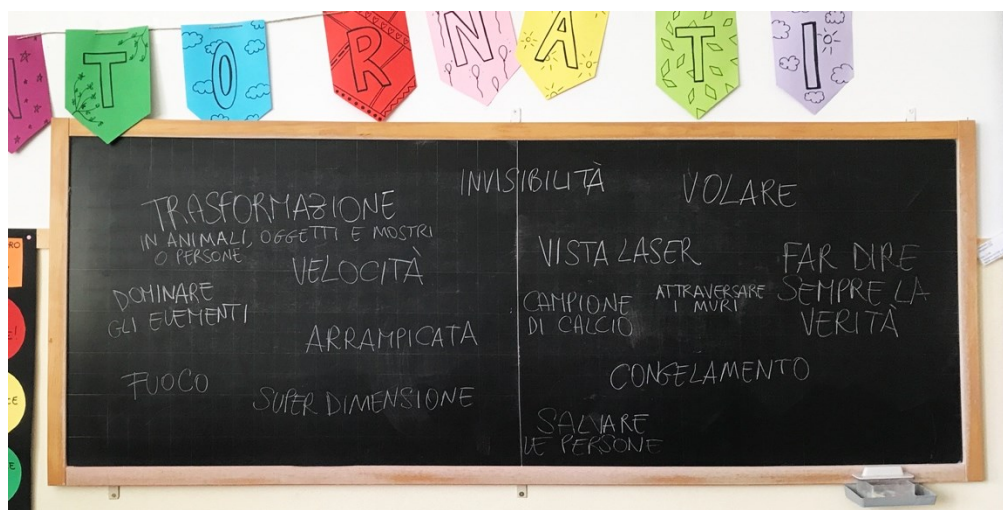 N T O R N A T I
INVISIBILITÀ
VOLARE
TRASFORMAZIONE
IN ANIMALI, OGGETTI E MOSTRI
O PERSONE
VELOCITÀ
DOMINARE
GLI ELEMENTI
ARRAMPICATA
FUOCO
SUPER DIMENSIONE
VISTA LASER
FAR DIRE
SEMPRE LA
VERITÀ
CAMPIONE
DI CALCIO
ATTRAVERSARE
I MURI
CONGELAMENTO
SALVARE
LE PERSONE